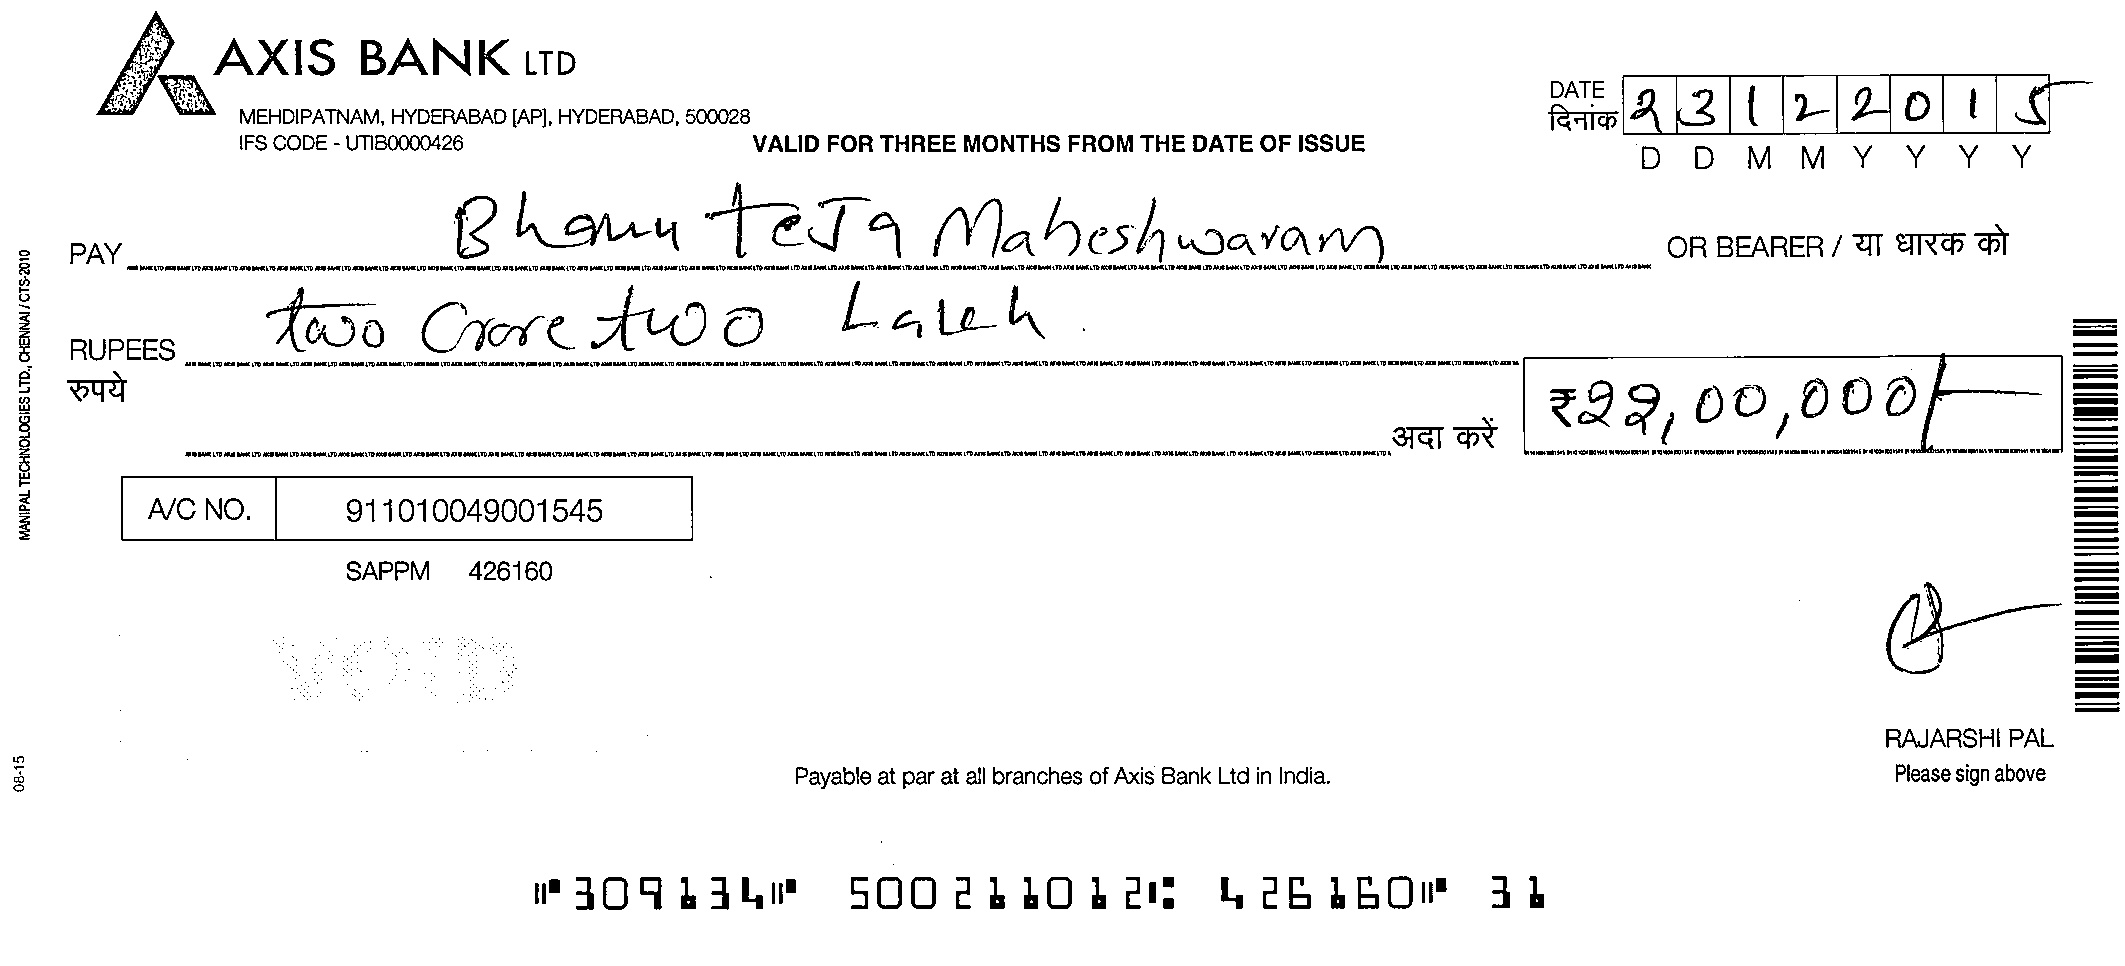 AXIS BANK LTD
MEHDIPATNAM, HYDERABAD [AP], HYDERABAD, 500028
IFS CODE - UTIB0000426
VALID FOR THREE MONTHS FROM THE DATE OF ISSUE
DATE दिनांक 23122015
D D M M Y Y Y Y
PAY Bhanu teJa Maheshwaram OR BEARER / या धारक को
RUPEES रुपये two Crore two Lakh
अदा करें ₹22,00,000/-
A/C NO. 911010049001545
SAPPM 426160
VOID
RAJARSHI PAL
Please sign above
Payable at par at all branches of Axis Bank Ltd in India.
MANIPAL TECHNOLOGIES LTD, CHENNAI / CTS-2010
08-15
⑈309134⑈ 500211012⑆ 426160⑈ 31